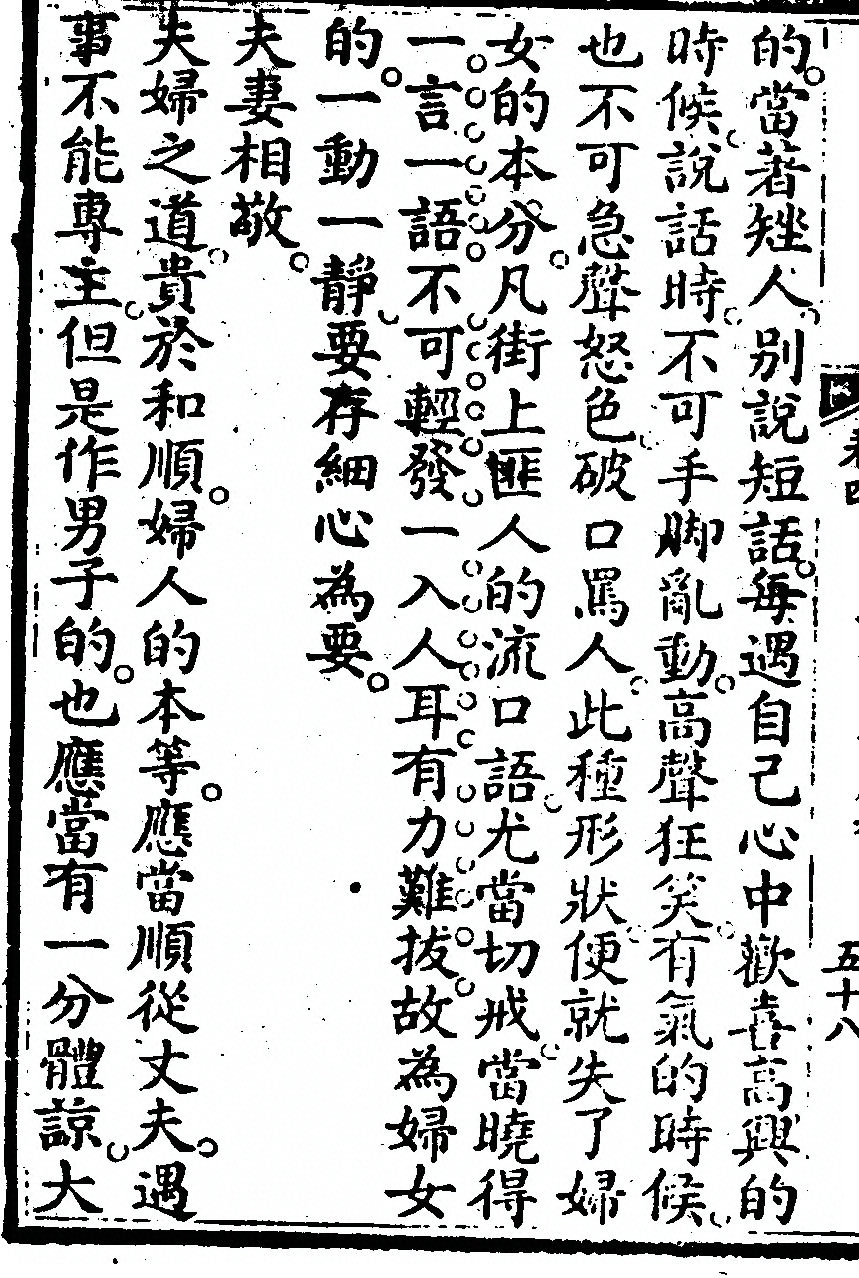 卷四
五十八
的當著矬人別說短話每遇自己心中歡喜高興的
時候說話時不可手脚亂動高聲狂笑有氣的時候
也不可急聲怒色破口罵人此種形狀便就失了婦
女的本分凡街上匪人的流口語尤當切戒當曉得
一言一語不可輕發一入人耳有力難拔故為婦女
的一動一靜要存細心為要
夫妻相敬
夫婦之道貴於和順婦人的本等應當順從丈夫遇
事不能專主但是作男子的也應當有一分體諒大